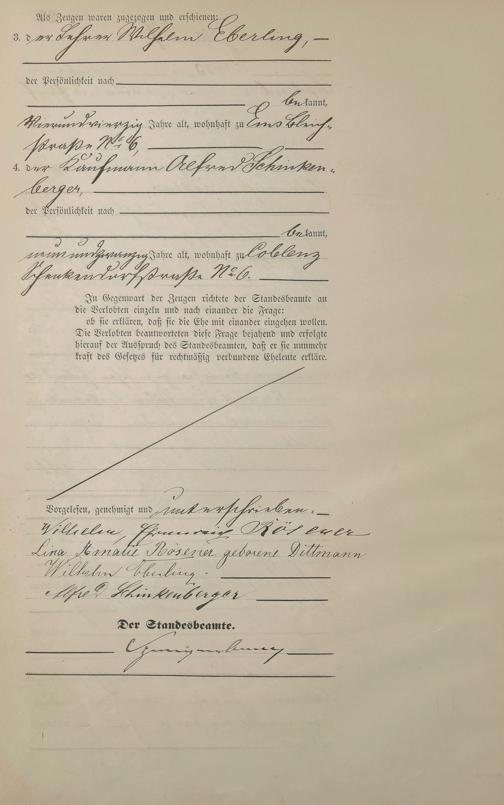 Als Zeugen waren zugezogen und erschienen:
3. der Lehrer Wilhelm Eberling, —
der Persönlichkeit nach
bekannt,
vierundvierzig Jahre alt, wohnhaft zu Ems Bleich-
straße No 6,
4. der Kaufmann Alfred Schinken-
berger,
der Persönlichkeit nach
bekannt,
neunundzwanzig Jahre alt, wohnhaft zu Coblenz
Schenkendorfstraße No 6.
In Gegenwart der Zeugen richtete der Standesbeamte an
die Verlobten einzeln und nach einander die Frage:
ob sie erklären, daß sie die Ehe mit einander eingehen wollen.
Die Verlobten beantworteten diese Frage bejahend und erfolgte
hierauf der Ausspruch des Standesbeamten, daß er sie nunmehr
kraft des Gesetzes für rechtmäßig verbundene Eheleute erkläre.
Vorgelesen, genehmigt und unterschrieben. —
Wilhelm Rösener
Lina Amalie Rösener geborene Dittmann
Wilhelm Eberling.
Alfred Schinkenberger
Der Standesbeamte.